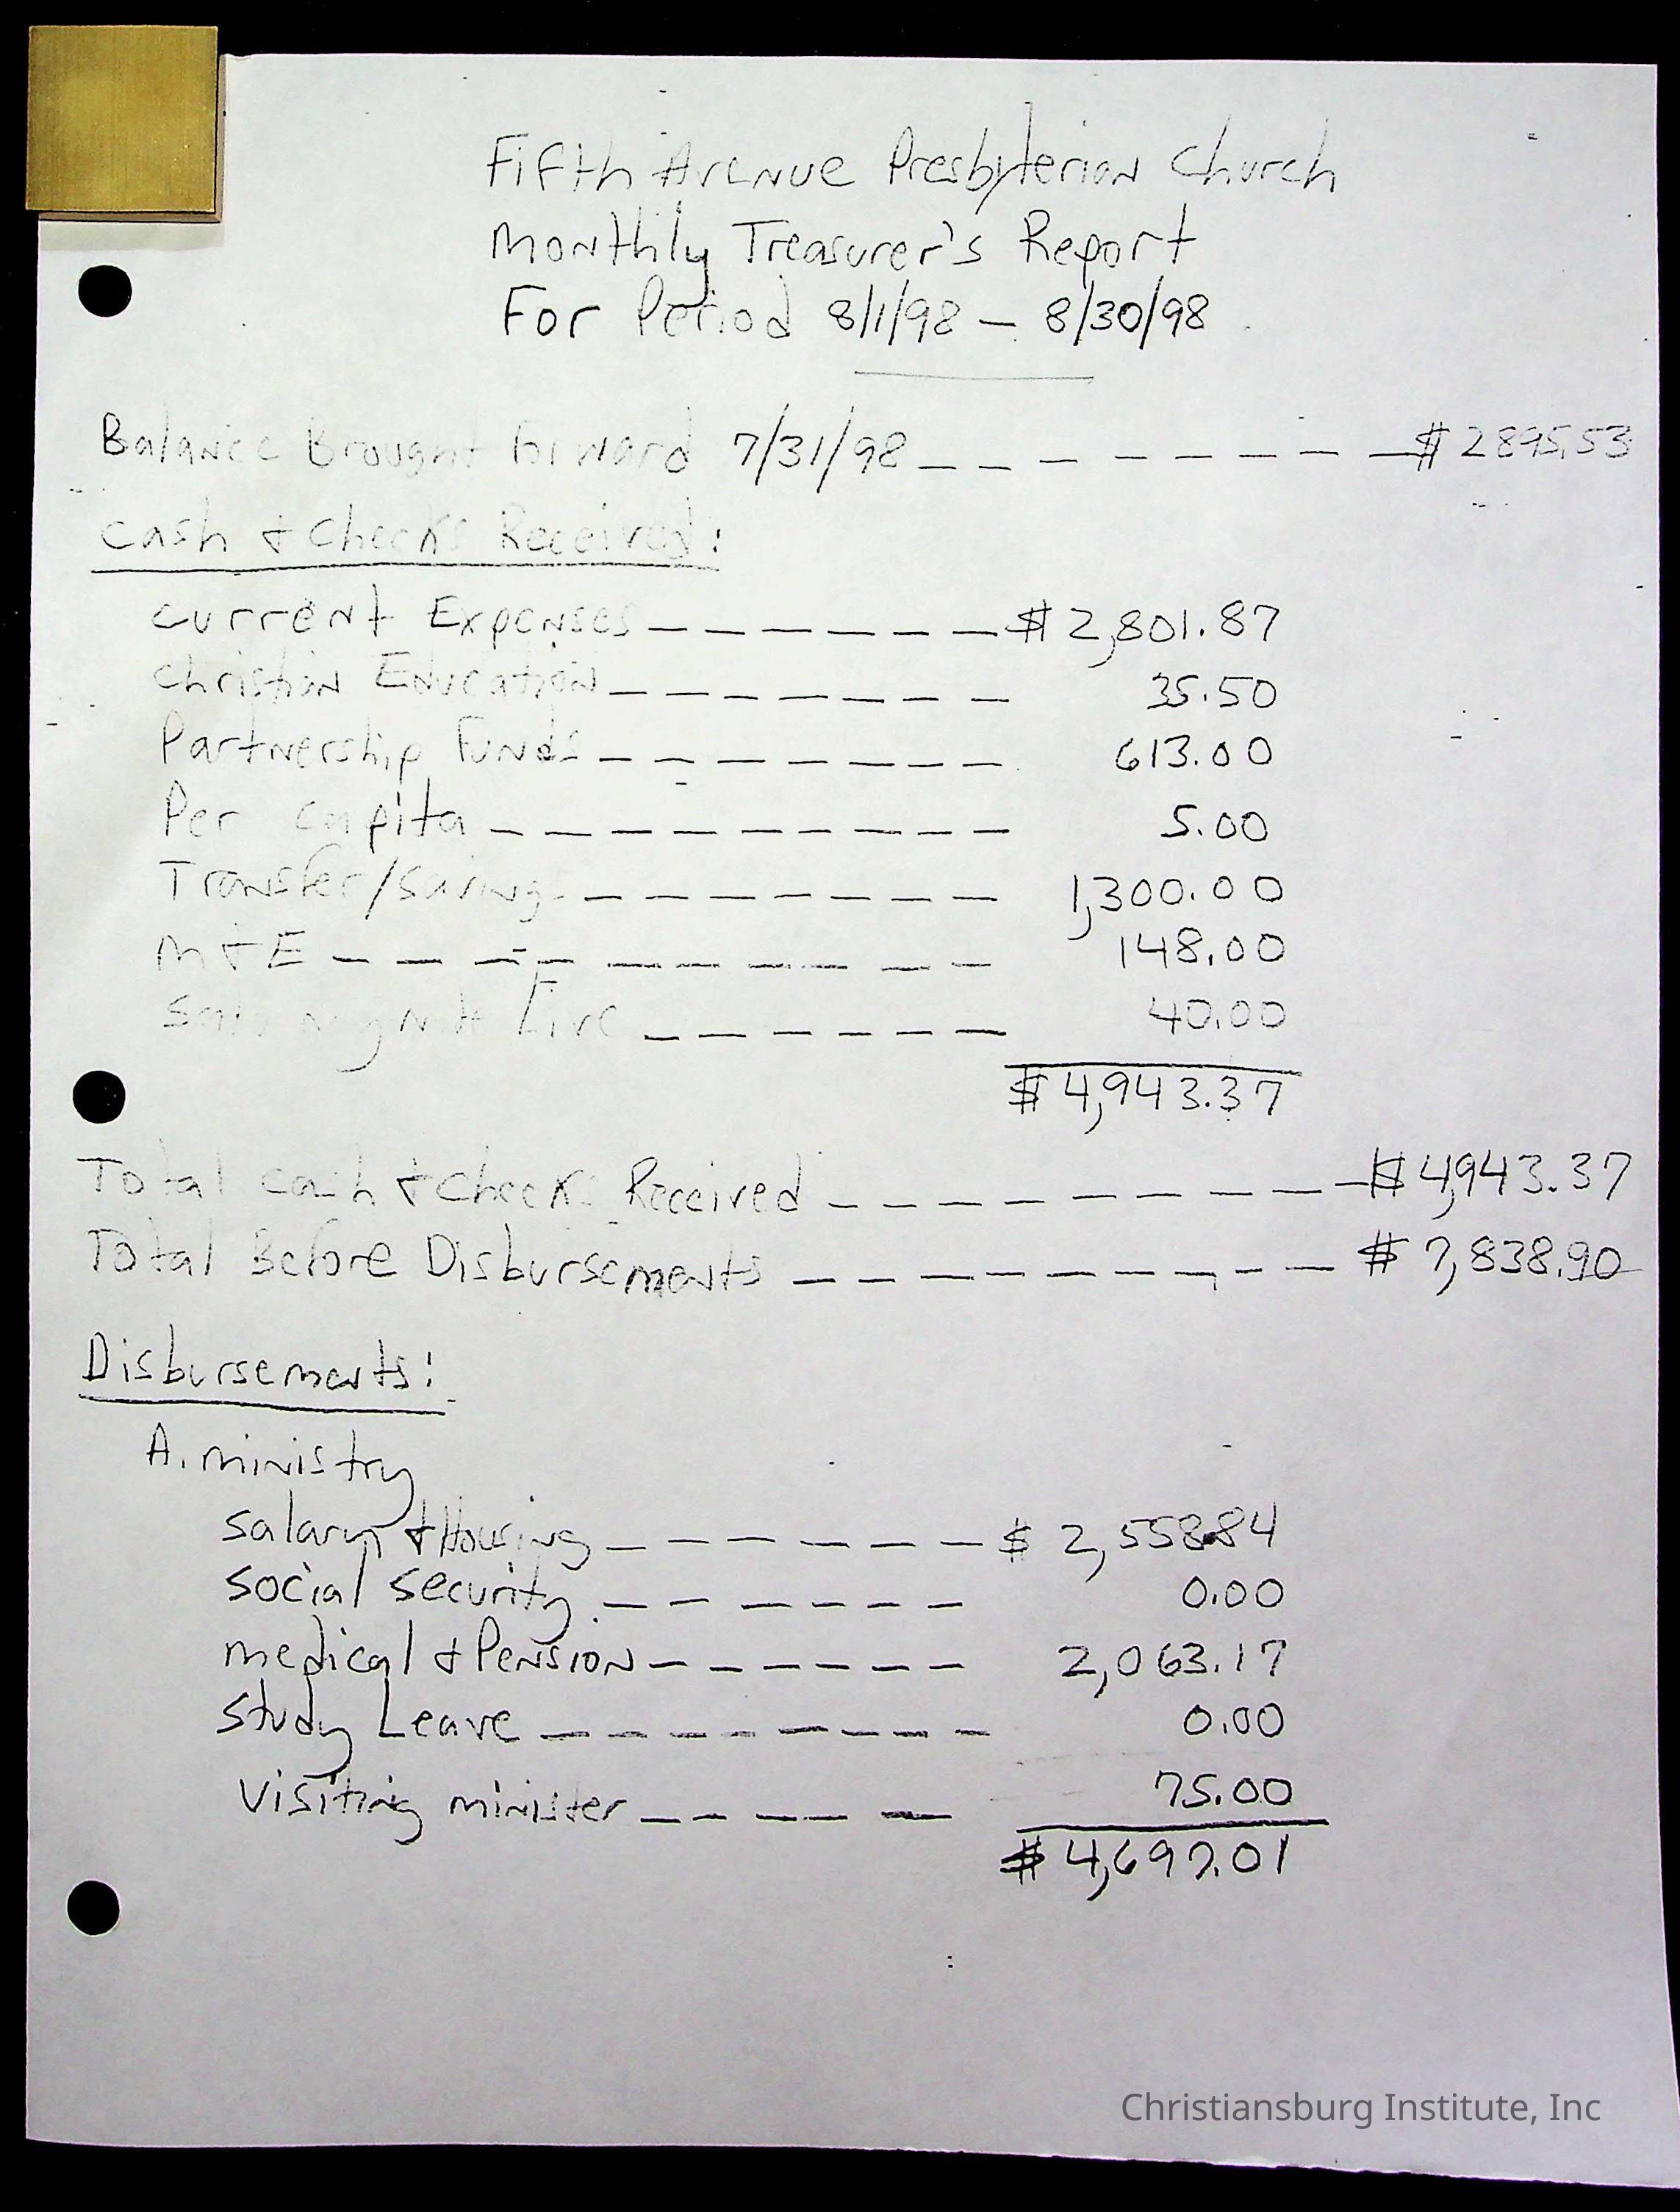 Fifth Avenue Presbyterian Church
Monthly Treasurer's Report
For Period 8/1/98 — 8/30/98
Balance Brought Forward 7/31/98 _ _ _ _ _ _ _ _ $ 2895.53
Cash + Checks Received:
Current Expenses _ _ _ _ _ _ $ 2,801.87
Christian Education _ _ _ _ _ _ _ 35.50
Partnership Funds _ _ _ _ _ _ _ 613.00
Per Capita _ _ _ _ _ _ _ _ _ 5.00
Transfer/Saving _ _ _ _ _ _ _ 1,300.00
M+E _ _ _ _ _ _ _ _ _ _ 148.00
Fire _ _ _ _ _ _ 40.00
$ 4,943.37
Total Cash + Checks Received _ _ _ _ _ _ _ _ _ $ 4,943.37
Total Before Disbursements _ _ _ _ _ _ _ _ _ $ 7,838.90
Disbursements:
A. Ministry
Salary + Housing _ _ _ _ _ _ $ 2,558.84
Social Security _ _ _ _ _ _ 0.00
Medical + Pension _ _ _ _ _ _ 2,063.17
Study Leave _ _ _ _ _ _ _ _ 0.00
Visiting Minister _ _ _ _ _ 75.00
$ 4,697.01
Christiansburg Institute, Inc